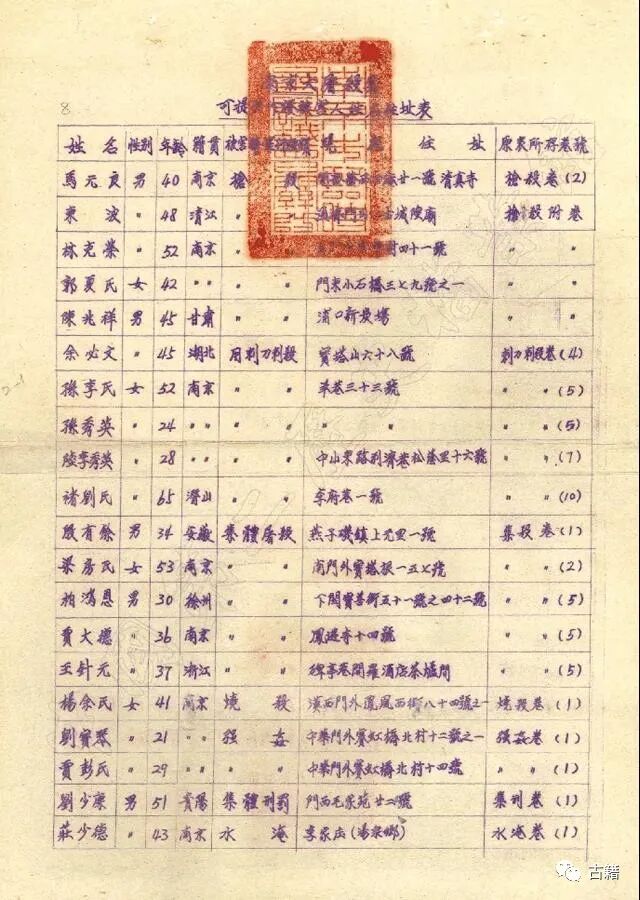 8
南京大屠殺案
可提
人姓名住址表
姓名 性別 年齡 籍貫 被害 住址 原表所存卷號
馬元良 男 40 南京 槍殺 廿一號清真寺 槍殺卷(2)
東波 〃 48 清江 〃 〃 城隍廟 槍殺附卷
林克榮 〃 52 南京 〃 四十一號 〃 〃
郭夏氏 女 42 〃〃 〃 〃 門東小石橋三七九號之一 〃 〃
陳兆祥 男 45 甘肅 〃 〃 浦口新農場 〃 〃
余必文 〃 45 湖北 用刺刀刺殺 寶塔山六十八號 刺刀刺殺卷(4)
孫李氏 女 52 南京 〃 〃 巷三十三號 〃 〃(5)
孫秀英 〃 24 〃〃 〃 〃 〃 〃 〃 〃 〃(5)
陸李秀英 〃 28 〃〃 〃 〃 中山東路利濟巷松蔭里十六號 〃 〃(7)
褚劉氏 〃 65 潛山 〃 〃 李府巷一號 〃 〃(10)
殷有餘 男 34 安徽 集體屠殺 燕子磯鎮上元里一號 集殺卷(1)
梁房氏 女 53 南京 〃 〃 南門外寶塔根一五七號 〃 〃(2)
柏鴻恩 男 30 徐州 〃 〃 下關寶善街五十一號之四十二號 〃 〃(5)
賈大德 〃 36 南京 〃 〃 鳳遊寺十四號 〃 〃(5)
王針元 〃 37 浙江 〃 〃 碑亭巷開羅酒店茶爐間 〃 〃(5)
楊余氏 女 41 南京 燒殺 漢西門外鳳凰西街八十四號之一 燒殺卷(1)
劉寶琴 〃 21 〃〃 强姦 中華門外賽虹橋北村十二號之一 强姦卷(1)
賈彭氏 〃 29 〃〃 〃 〃 中華門外賽虹橋北村十四號 〃 〃(1)
劉少康 男 51 貴陽 集體刑罰 門西毛家苑廿二號 集刑卷(1)
莊少德 〃 43 南京 水淹 李家庄(湯泉鄉) 水淹卷(1)
古籍